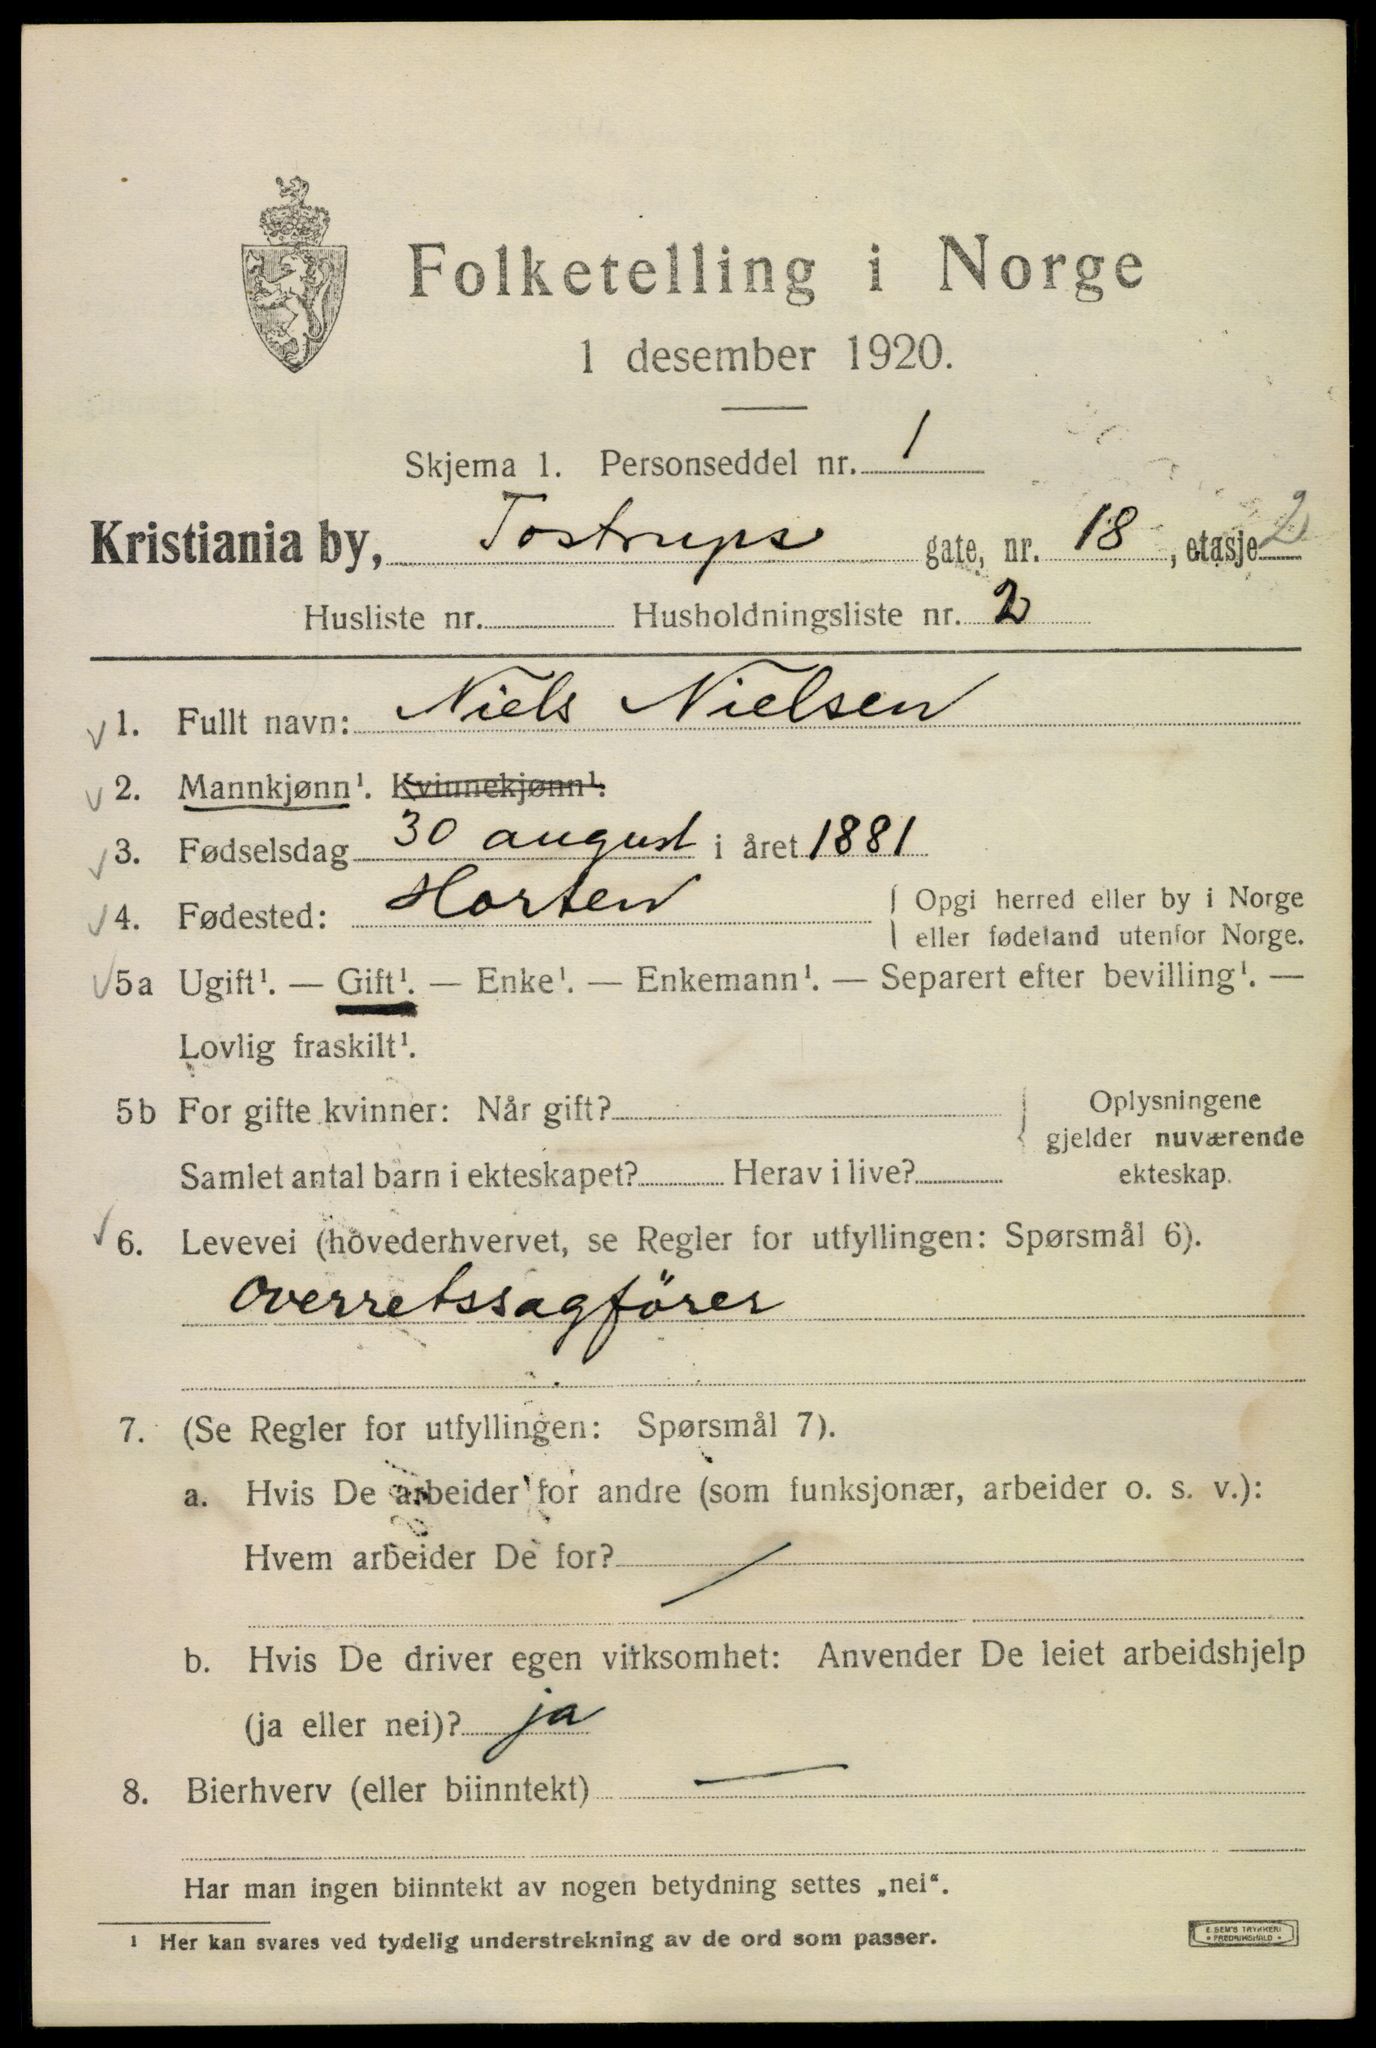 Folketelling i Norge
1 desember 1920.
Skjema 1. Personseddel nr. 1
Kristiania by, Tostrups gate, nr. 18, etasje 2
Husliste nr. Husholdningsliste nr. 2
1. Fullt navn: Niels Nielsen
2. Mannkjønn¹. Kvinnekjønn¹.
3. Fødselsdag 30 august i året 1881
4. Fødested: Horten { Opgi herred eller by i Norge
eller fødeland utenfor Norge.
5a Ugift¹. — Gift¹. — Enke¹. — Enkemann¹. — Separert efter bevilling¹. —
Lovlig fraskilt¹.
5b For gifte kvinner: Når gift? { Oplysningene
gjelder nuværende
Samlet antal barn i ekteskapet? Herav i live? ekteskap.
6. Levevei (hovederhvervet, se Regler for utfyllingen: Spørsmål 6).
Overretssagförer
7. (Se Regler for utfyllingen: Spørsmål 7).
a. Hvis De arbeider for andre (som funksjonær, arbeider o. s. v.):
Hvem arbeider De for? /
b. Hvis De driver egen virksomhet: Anvender De leiet arbeidshjelp
(ja eller nei)? ja
8. Bierhverv (eller biinntekt) —
Har man ingen biinntekt av nogen betydning settes „nei“.
¹ Her kan svares ved tydelig understrekning av de ord som passer.
E. SEM'S TRYKKERI
• FREDRIKSHALD •